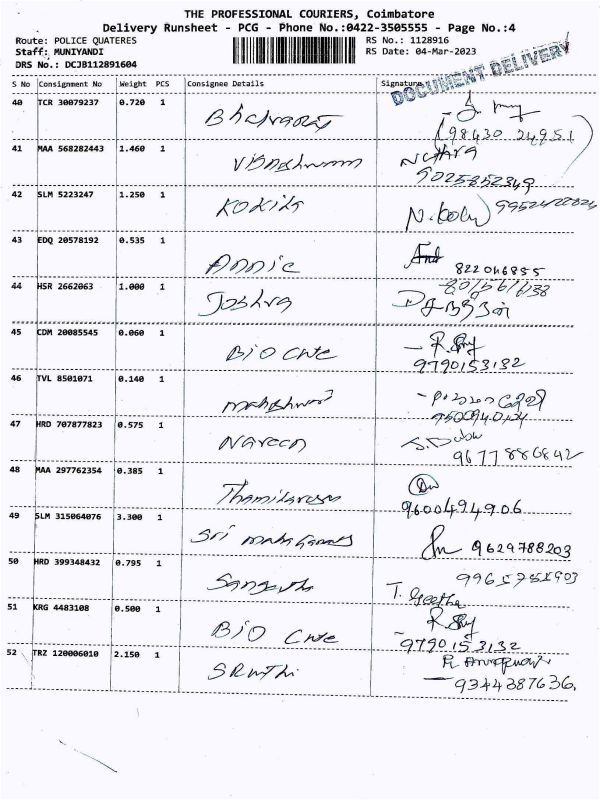 THE PROFESSIONAL COURIERS, Coimbatore
Delivery Runsheet - PCG - Phone No.:0422-3505555 - Page No.:4
Route: POLICE QUATERES
RS No.: 1128916
Staff: MUNIYANDI
RS Date: 04-Mar-2023
DRS No.: DCJB112891604
DOCUMENT DELIVERY
S No Consignment No Weight PCS Consignee Details Signature
40 TCR 30079237 0.720 1
98430 24951
41 MAA 568282443 1.460 1
9025852349
42 SLM 5223247 1.250 1 KOKILA
43 EDQ 20578192 0.535 1 Annie
822046855
44 HSR 2662063 1.000 1 Joshva
45 CDM 20085545 0.060 1 BIO CARE
9790153132
46 TVL 8501071 0.140 1 maheshwari
47 HRD 707877823 0.575 1 Naveen S.Babu
9677886842
48 MAA 297762354 0.385 1 Thamilarasan
9600494906
49 SLM 315064076 3.300 1 Sri
9629788203
50 HRD 399348432 0.795 1 Sangeetha T. Geetha
51 KRG 4483108 0.500 1 BIO CARE
9790153132
52 TRZ 120006010 2.150 1 SRUTHI
9344387636.